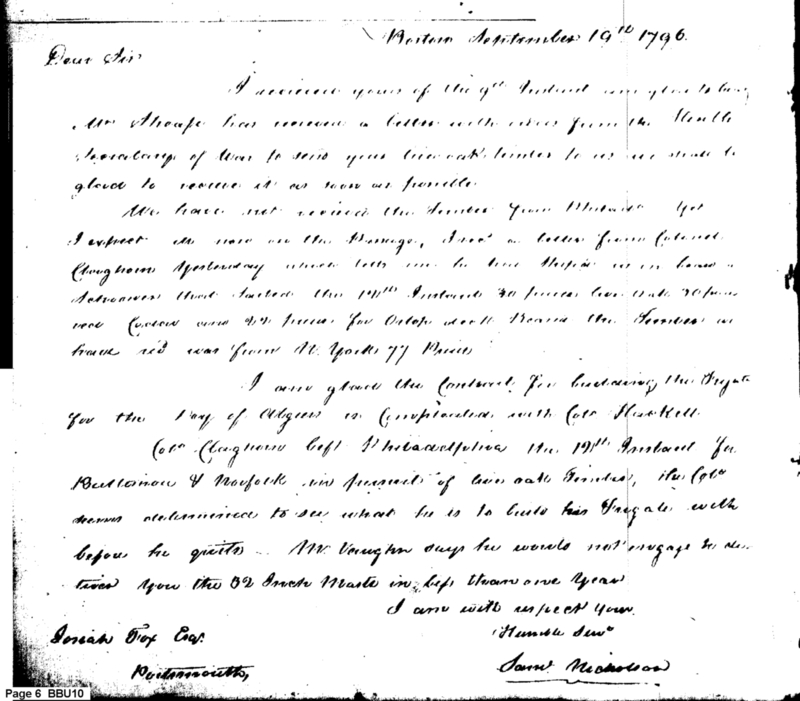 Boston September 19th 1796.
Dear Sir
I received yours of the 9th Instant am glad to hear
Mr Sharpe has received a letter with orders from the Honble
Secretary of War to send your live oak timber to us we shall be
glad to receive it as soon as possible
We have not received the Timber from Philada Yet
I expect its now on the Passage, I recd a letter from Colonel
Claghorn Yesterday which tells me he has Shipd us on board a
Schooner that Sailed the 12th Instant 30 pieces live oak 30 pieces
red Cedar and 22 pieces for Orlop deck Beams the Timber we
have recd was from N. York 77 Pieces
I am glad the Contract for building the Frigate
for the Dey of Algiers is Compleated with Colo Hackett
Colo Claghorn left Philadelphia the 12th Instant for
Baltimore & Norfolk in pursuit of live oak Timber, the Colo
seems determined to see what he is to build his Frigate with
before he quits. Mr Vaughn says he would not engage to de-
liver you the 32 Inch Masts in less than one Year
I am with respect Your
Humble Servt
Saml Nicholson
Josiah Fox Esqr
Portsmouth,
Page 6 BBU10